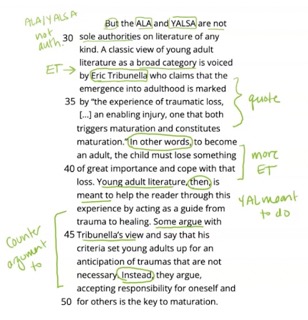 ALA/YALSA
not
auth.
But the ALA and YALSA are not
30 sole authorities on literature of any
kind. A classic view of young adult
literature as a broad category is voiced
ET → by Eric Tribunella who claims that the
emergence into adulthood is marked
35 by "the experience of traumatic loss,
[...] an enabling injury, one that both
triggers maturation and constitutes
maturation." In other words, to become
quote
an adult, the child must lose something
40 of great importance and cope with that
more
ET
loss. Young adult literature, then, is
meant to help the reader through this
experience by acting as a guide from
trauma to healing. Some argue with
YAL meant
to do
45 Tribunella's view and say that his
criteria set young adults up for an
anticipation of traumas that are not
necessary. Instead, they argue,
accepting responsibility for oneself and
50 for others is the key to maturation.
Counter
argument
to